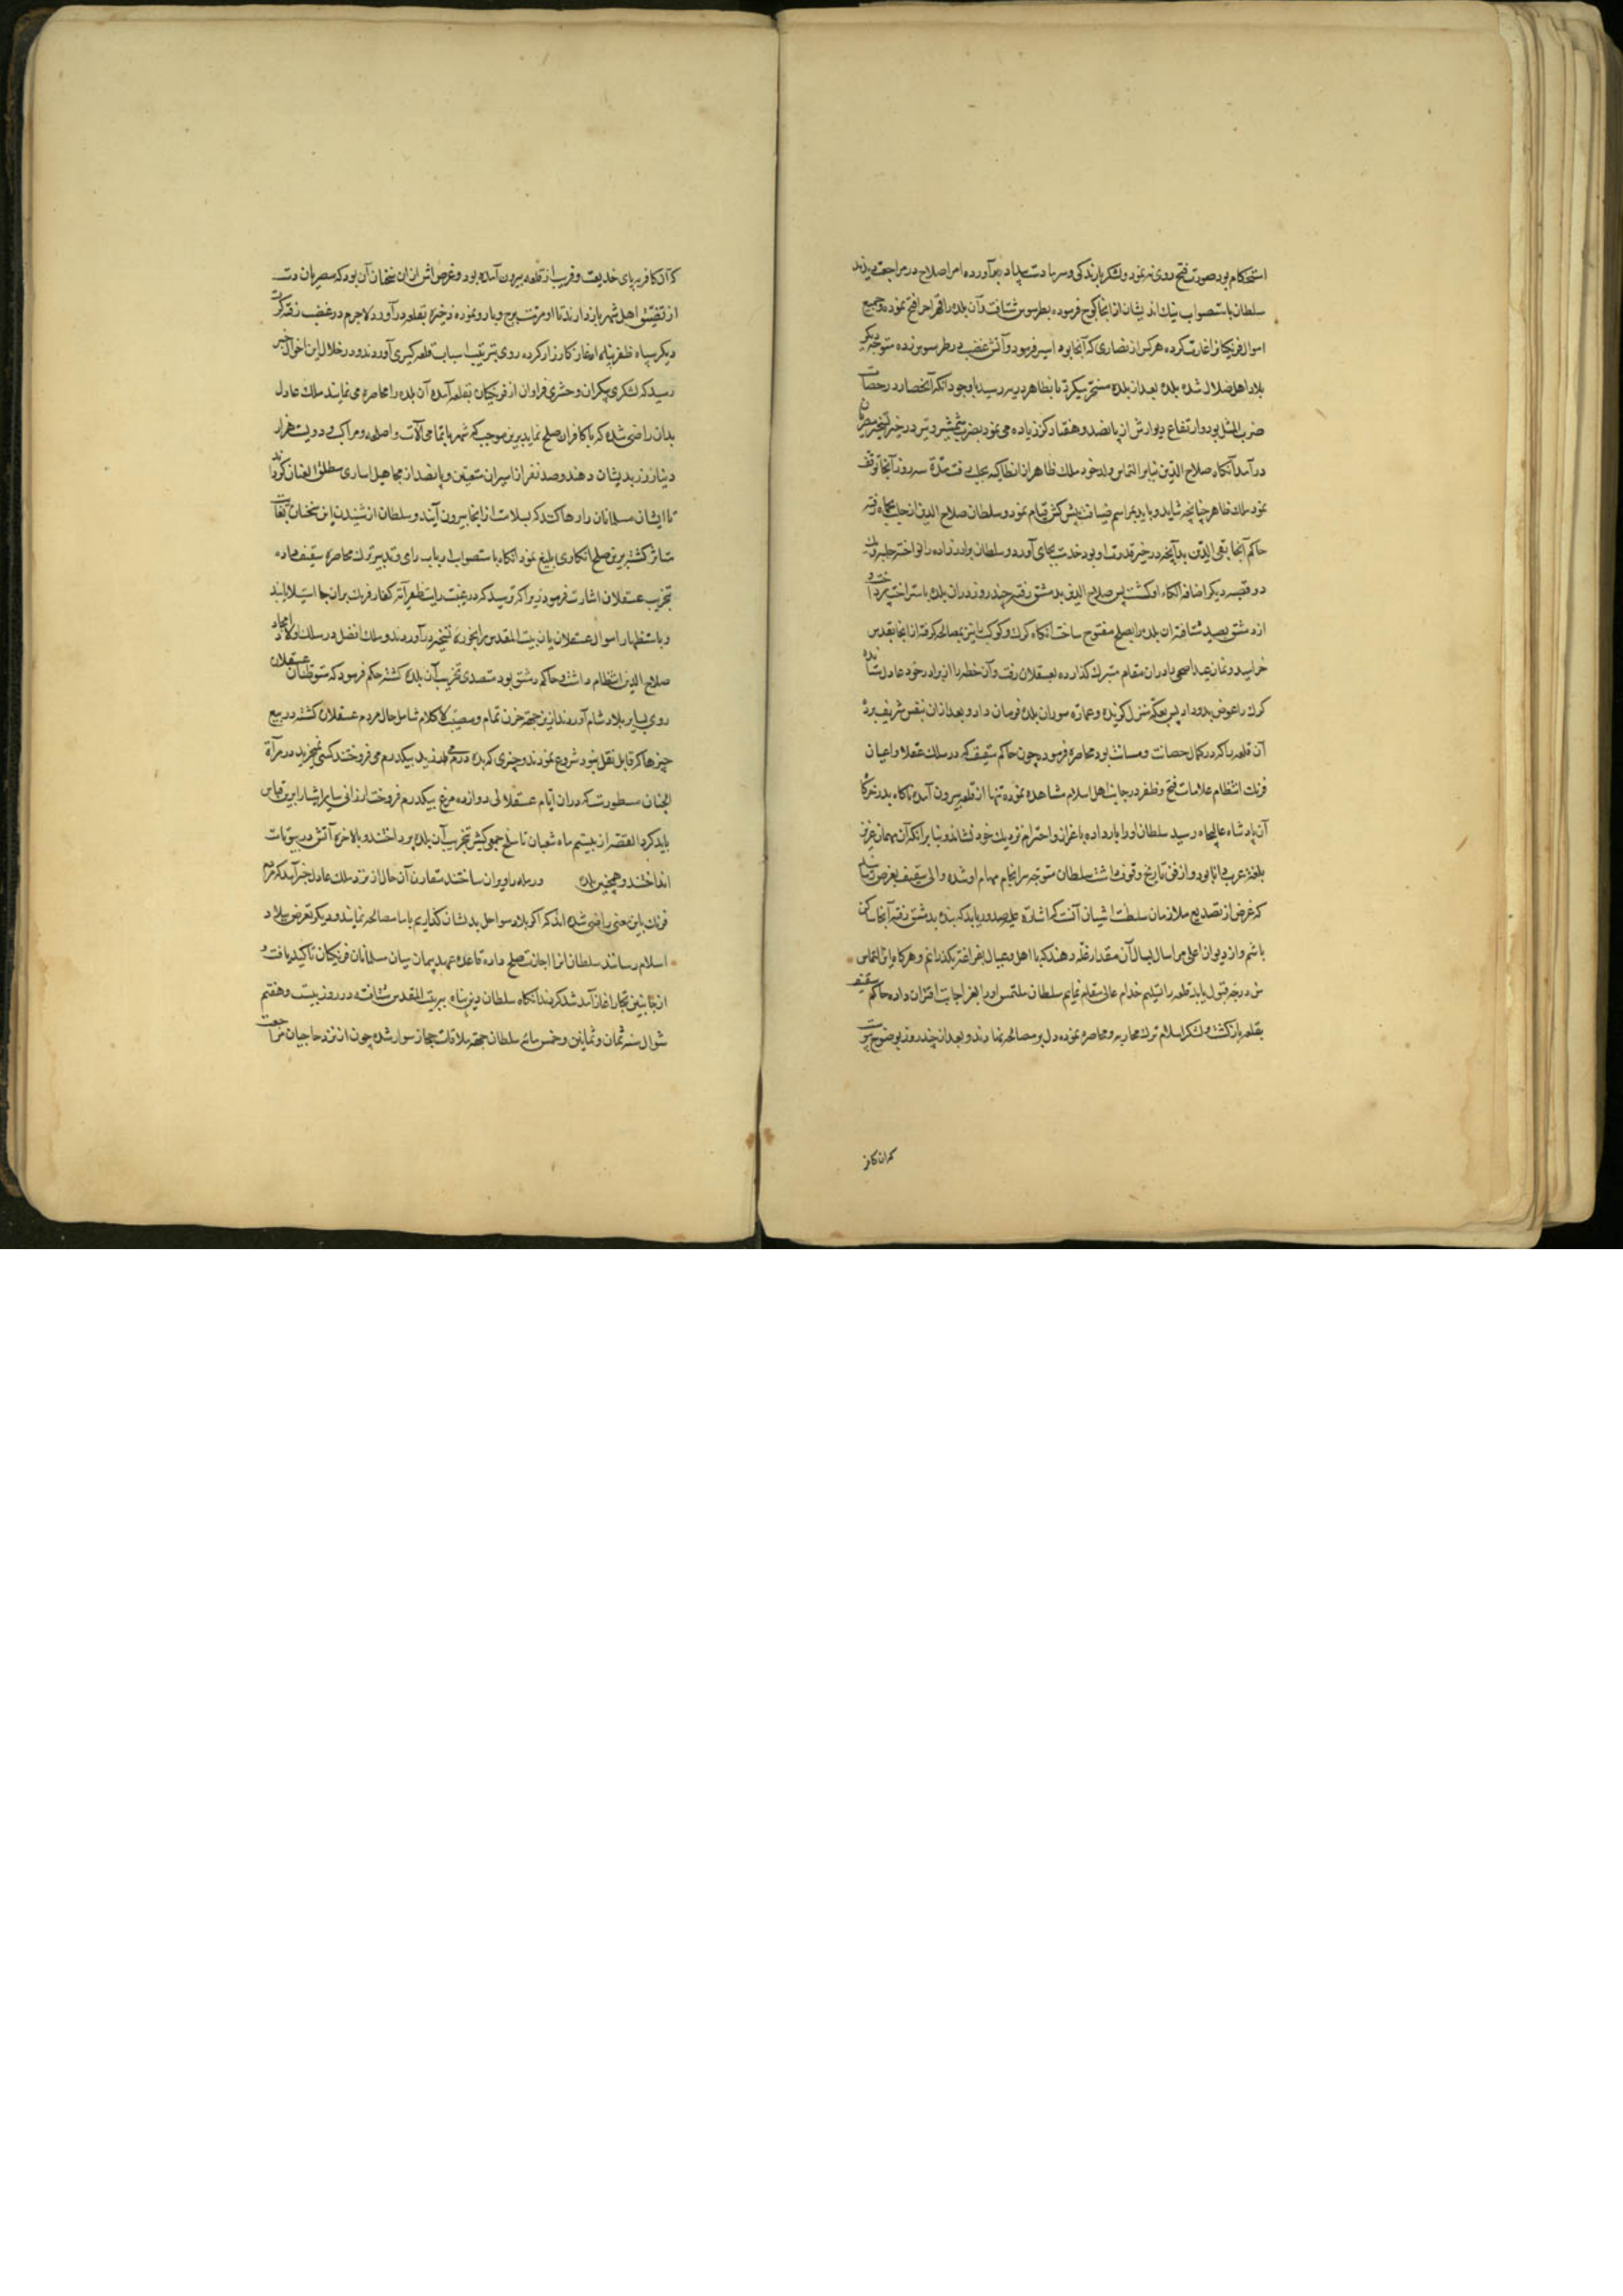 استحکام بود صورت فتح روی ننمود و لشکر بارندگی و سرما دست بیداد برآورده امرا صلاح در مراجعت دیدند
سلطان باستصواب نیک اندیشان از انجا کوچ فرموده بطرسوس شتافت و آن بلده را قهرا جبرا فتح نموده و جمیع
اموال فرنگیانرا غارت کرده هر کس از نصاری که آنجا بود اسیر فرمود و آتش غضب در طرسوس زده متوجه دیگر
بلاد اهل ضلال شده بلده بعد از بلده مسخر میکرد تا بظاهر رسید با وجود آنکه آنحصار در حصانت
ضرب المثل بود و ارتفاع دیوارش از پانصد و هفتاد گز زیاده می نمود بضرب شمشیر و تیر در حیز تسخیر
در آمد آنگاه صلاح الدین بنابر التماس ولد خود ملک ظاهر از انطاکیه بحلب رفت و مدة سه روز آنجا توقف
نمود ملک ظاهر چنانچه شاید و باید بمراسم ضیافت و پیش کش قیام نمود و سلطان صلاح الدین از حلب بحماه رفته
حاکم آنجا تقی الدین بدآنچه در حیز قدرت او بود خدمت بجای آورد و سلطان برادرزاده را نواخته جبله و
دو قصبه دیگر اضافه الکاء او گشت پس صلاح الدین بدمشق رفته چند روز دران بلده باستراحت پرداخت و
از دمشق بصید شتافته ان بلده را بصلح مفتوح ساخت آنگاه کرک و کوکب را نیز بمصالحه گرفته از انجا بقدس
خرامید و نماز عید اضحی را دران مقام متبرک گذارده بعسقلان رفت و آن خطه را از برادر خود عادل ستانده
کرک را عوض بدو داد پس بعکه منزل گزیده و عمارة سور ان بلده فرمان داد و بعد ازان بنفس شریف بر در
آن قلعه را که در کمال حصانت و متانت بود محاصره فرموده چون حاکم شقیف که در سلک عقلا و اعیان
فرنک انتظام علامات فتح و ظفر در جانب اهل اسلام مشاهده نموده تنها از قلعه بیرون آمده ناکاه بدر خرکاه
آن پادشاه عالیجاه رسید سلطان اورا بار داده باعزاز و احترام نزدیک خود نشاند و بنا بر آنکه آن مهمان عزیز
بلغة عرب دانا بود و از فن تاریخ وقوف داشت سلطان متوجه سرانجام مهام او شده والی شقیف بعرض رسانید
که غرض از تصدیع ملازمان سلطنت اشیان آنست که اشارة علیه صدور یابد که بنده بدمشق رفته آنجا ساکن
باشم و از دیوان اعلی هر سال آن مقدار غله دهند که با اهل و عیال بفراغت بگذرانم و هرکاه این التماس
من درجه قبول یابد قلعه را تسلیم خدام عالی مقام نمایم سلطان ملتمس اورا بعز اجابت اقتران داده حاکم شقیف
بقلعه بازگشت و لشکر اسلام ترک محاربه و محاصره نموده دل بر مصالحه نهادند و بعد از چند روز بوضوح پیوست
که آن کافر
که آن کافر بر پای خدیعت و فریب از قلعه بیرون آمده بود و غرض اش ازان سخنان آن بود که مصریان دست
از تضییق اهل شهر بازدارند تا او مرمت برج و بارو نموده ذخیره بقلعه درآورد لاجرم در غضب رفته کرت
دیکر سپاه ظفر پناه اغاز کارزار کرده روی بترتیب اسباب قلعه گیری آوردند و در خلال این احوال خبر
رسید که لشکری بیکران و حشری فراوان از فرنگیان بقلعه آمده آن بلده را محاصره می نمایند ملک عادل
بدان راضی شده که با کافران صلح نماید برین موجب که شهر با تمامی آلات و اسلحه و مراکب و دویست هزار
دینار زر بدیشان دهند و صد نفر از اسیران متعین و پانصد از مجاهیل اساری مطلق العنان گردانند
تا ایشان مسلمانان را رها کنند که بسلامت از انجا بیرون آیند و سلطان از شنیدن این سخنان بغایت
متاثر گشته برین صلح انکاری بلیغ نمود انکاه باستصواب ارباب رای و تدبیر ترک محاصره شقیف داده
بتخریب عسقلان اشارت فرمود زیرا که ترسید که در غیبت رایت ظفر آیت کفار فرنک بران جا استیلا یابند
و باستظهار اموال عسقلان بیت المقدس را بحوزه تسخیر درآورند و ملک افضل در سلک اولاد امجاد
صلاح الدین انتظام داشت و حاکم دمشق بود متصدی تخریب آن بلده گشته حکم فرمود که متوطنان عسقلان
روی بسایر بلاد شام آورند ازین جهة حزن تمام و مصیبت لا کلام شامل حال مردم عسقلان گشته در بیع
چیزها که قابل نقل نبود شروع نمودند و چیزی که بده درم می ارزید بیکدرم می فروختند کسی نمیخرید در مرآة
الجنان مسطورست که دران ایام عسقلانی دوازده مرغ بیکدرم فروخت ارزانی سایر اشیا را برین قیاس
باید کرد القصه از بیستم ماه شعبان تا سلخ جمعی کثیر بتخریب آن بلده پرداختند و بالاخره آتش در بیوتات
انداختند و همچنین بلده و رمله را ویران ساختند مقارن آن حال از نزد ملک عادل خبر آمد که مردم
فرنک باین معنی راضی شده اند که اکر بلاد سواحل بدیشان گذاریم با ما مصالحه نمایند و دیکر تعرض ببلاد
اسلام نرسانند سلطان انرا اجازت صلح داده قاعده عهد و پیمان میان مسلمانان فرنگیان تاکید یافت و
از جانبین تجار اغاز آمد شد کردند انکاه سلطان دین پناه ببیت المقدس شتافته در روز بیست و هفتم
شوال سنه ثمان و ثمانین و خمس مائه سلطان جهة ملاقات حجاز سوار شده چون از نزد حاجیان مراجعت